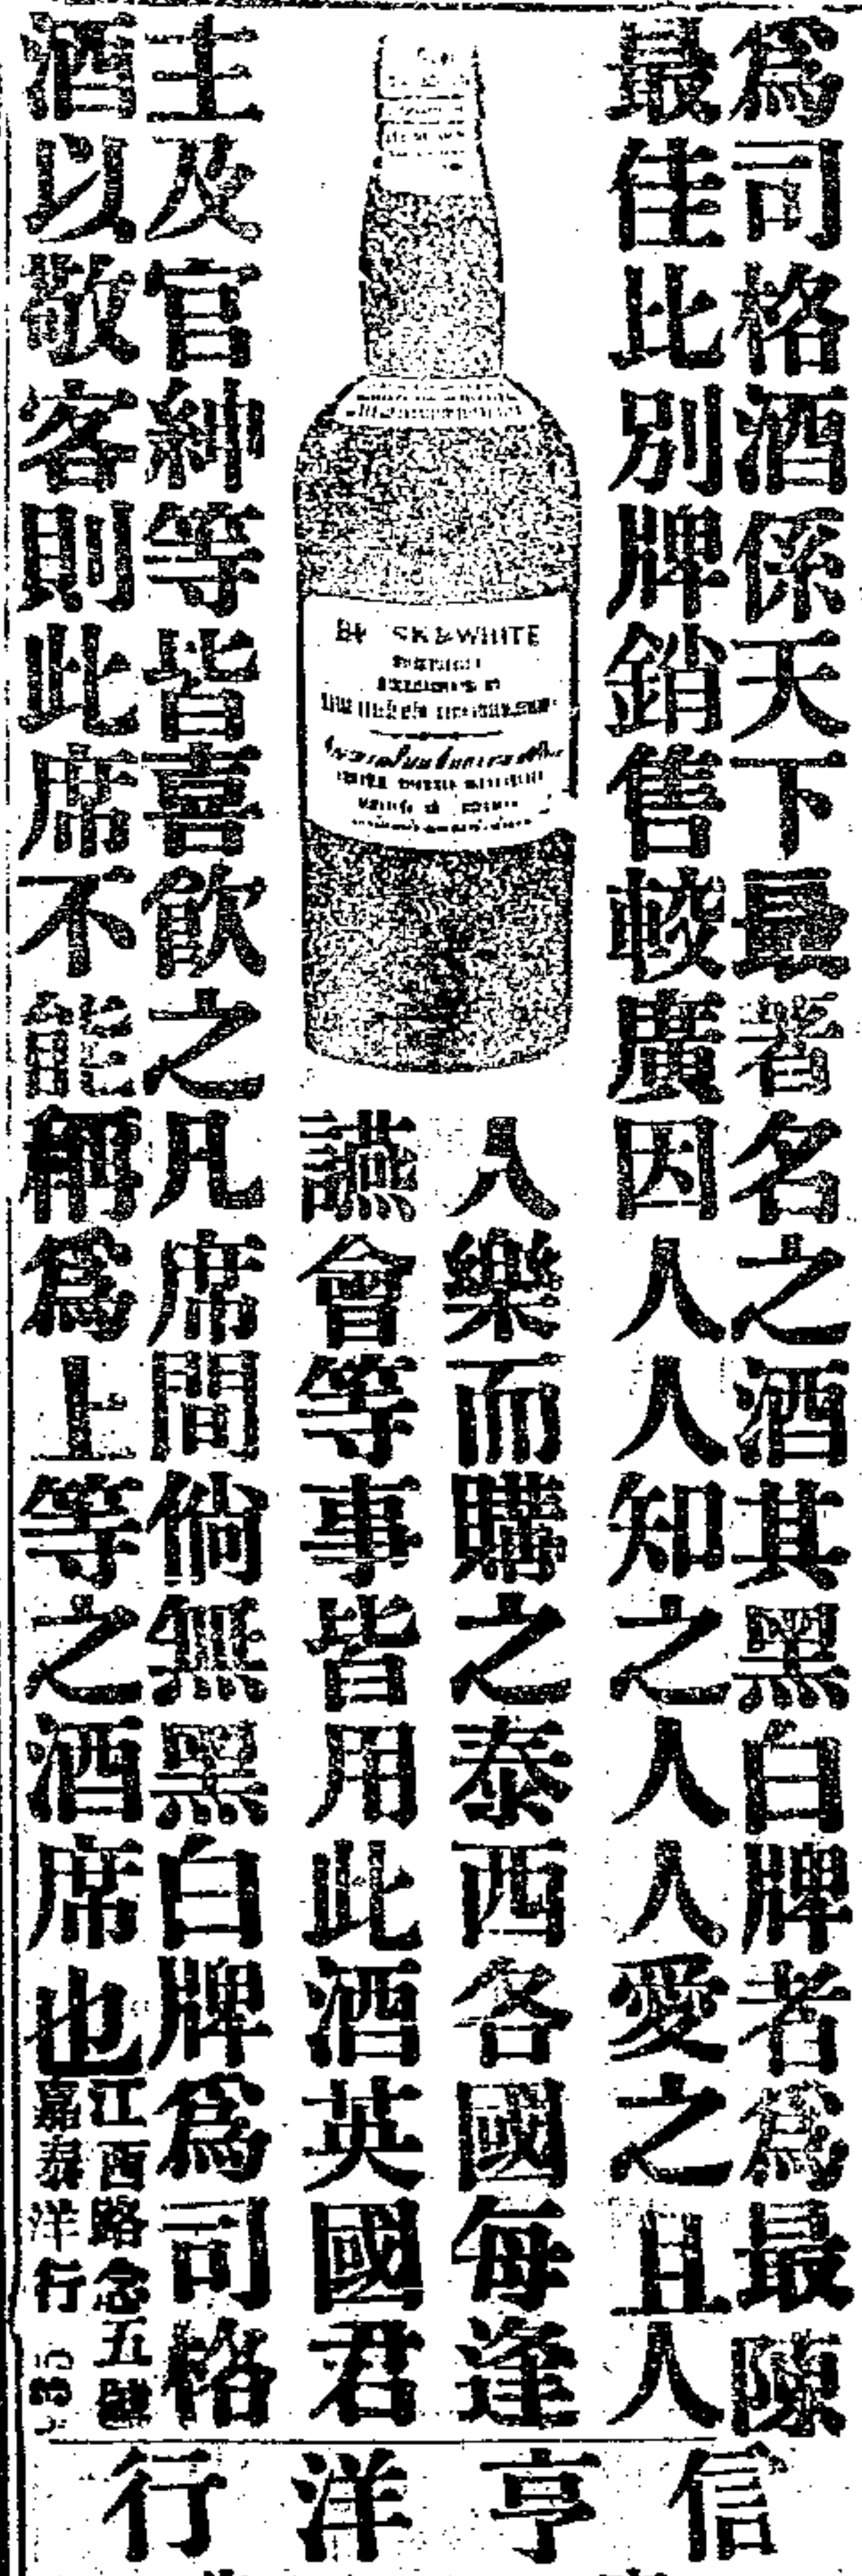 為司格酒係天下最著名之酒其黑白牌者為最陳
最佳比別牌銷售較廣因人人知之人人愛之且人
人樂而購之泰西各國每逢
讌會等事皆用此酒英國君
主及官紳等皆喜飲之凡席間倘無黑白牌為司格
酒以敬客則此席不能稱為上等之酒席也
江西路念五號
嘉泰洋行
信亨洋行
WHITE